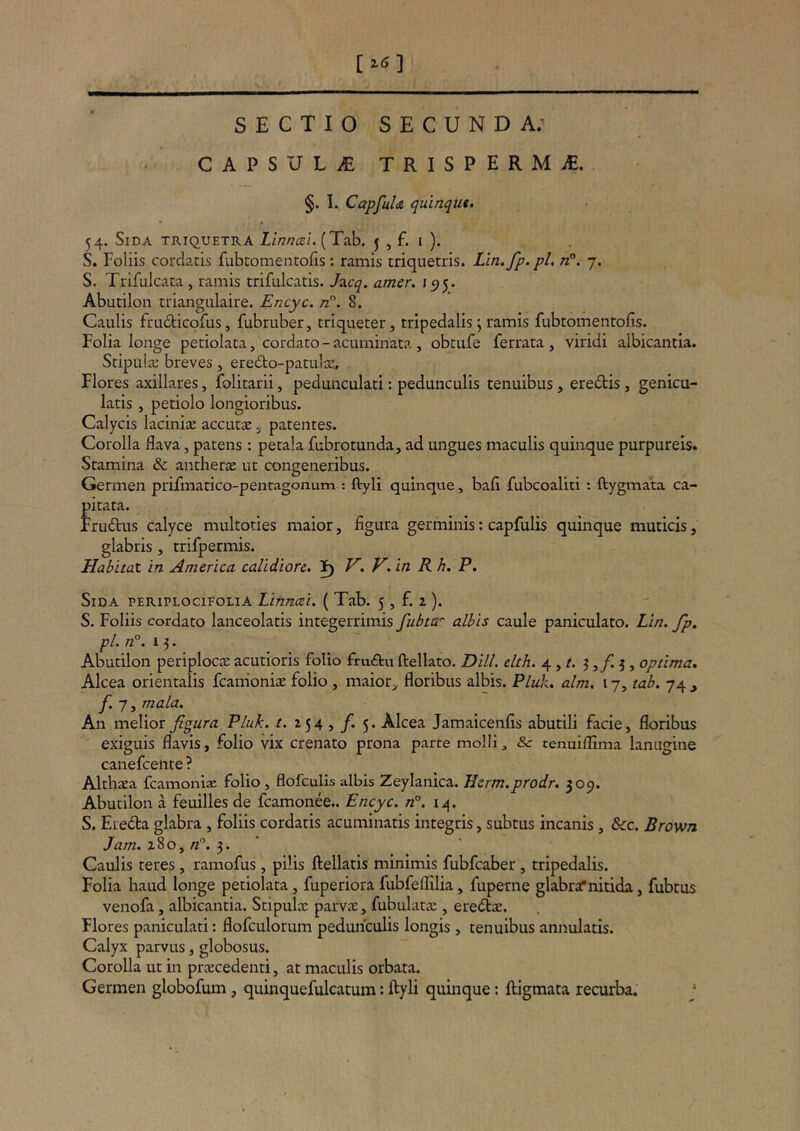 [ 26 ]
SECTIO SECUNDA.
CAPSULÆ TRISPERMÆ.
§. I. Capſulæ quinque.
54. SIDA TRIQUETRA Linnæi. ( Tab. 5 , f. 1 ).
S. Foliis cordatis ſubtomentoſis : ramis triquetris. Lin. ſp. pl. n°. 7.
S. Triſulcata , ramis triſulcatis. Jacq. amer. 195.
Abutilon triangulaire. Encyc. n°. 8.
Caulis fructicoſus, ſubruber, triqueter, tripedalis ; ramis ſubtomentoſis.
Folia longe petiolata, cordato-acuminata, obtuſe ſerrata, viridi albicantia.
Stipulæ breves , erecto-patulæ.
Flores axillares, ſolitarii, pedunculati : pedunculis tenuibus, erectis , genicu-
latis , petiolo longioribus.
Calycis laciniæ accutæ , patentes.
Corolla flava, patens : petala ſubrotunda, ad ungues maculis quinque purpureis.
Stamina & antheræ ut congeneribus.
Germen priſmatico-pentagonum : ſtyli quinque, baſi ſubcoaliti : ſtygmata ca-
pitata.
Fructus calyce multoties maior, figura germinis : capſulis quinque muticis,
glabris , triſpermis.
Habitat in America calidiore. ♄ V. V. in R h. P.
SIDA PERIPLOCIFOLIA Linnæi. ( Tab. 5 , f. 2 ).
S. Foliis cordato lanceolatis integerrimis ſubtus albis caule paniculato. Lin. ſp.
pl. n°. 13.
Abutilon periplocæ acutioris folio fructu ſtellato. Dill. elth. 4 , t. 3 , f. 3 , optima.
Alcea orientalis ſcamoniæ folio , maior, floribus albis. Pluk. alm. 17, tab. 74 ,
f. 7, mala.
An melior figura Pluk. t. 254 , f. 5. Alcea Jamaicenſis abutili facie, floribus
exiguis flavis, folio vix crenato prona parte molli , & tenuiſſima lanugine
caneſcente ?
Althæa ſcamoniæ folio , floſculis albis Zeylanica. Herm. prodr. 309.
Abutilon à feuilles de ſcamonée.. Encyc. n°. 14.
S. Erecta glabra , foliis cordatis acuminatis integris, subtus incanis , &c. Brown
Jam. 280, n°. 3.
Caulis teres , ramoſus , pilis ſtellatis minimis ſubſcaber , tripedalis.
Folia haud longe petiolata , ſuperiora ſubſeſſilia , ſuperne glabra nitida, ſubtus
venoſa , albicantia. Stipulæ parvæ, ſubulatæ , erectæ.
Flores paniculati : floſculorum pedunculis longis , tenuibus annulatis.
Calyx parvus , globosus.
Corolla ut in præcedenti, at maculis orbata.
Germen globoſum , quinqueſulcatum : ſtyli quinque : ſtigmata recurba.